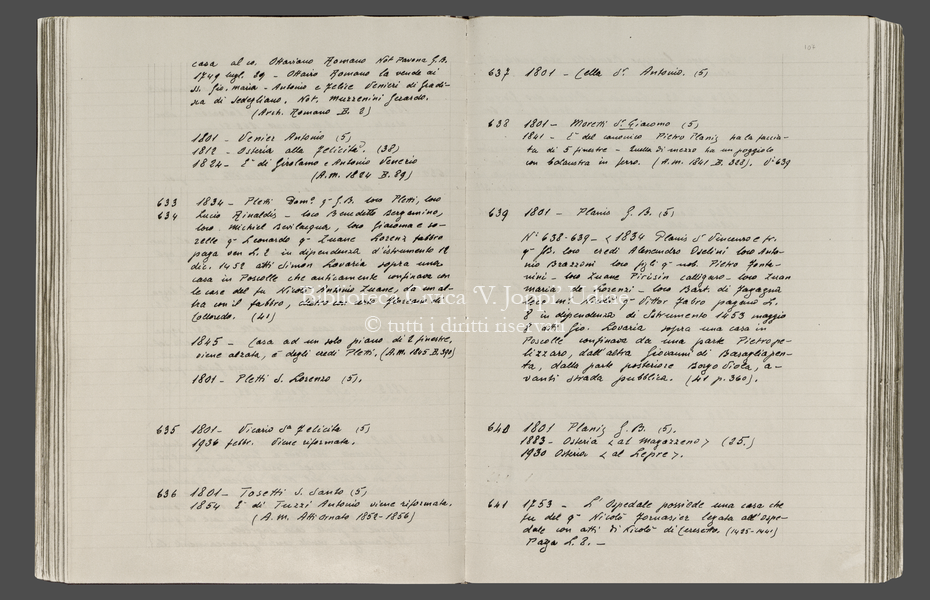 casa al co. Ottaviano Romano Not Pavona G.B.
1749 lugl. 29 - Ottavio Romano la vende ai
ss. Gio. Maria - Antonio e Felice Venieri di Gradi-
sca di Sedegliano. Not. Muzzenini Gerardo.
(Arch. Romano B. 8)
1801 - Venier Antonio (5)
1812 - Osteria alla Felicità. (38)
1824 - È di Girolamo e Antonio Venerio
(A.m. 1824 B. 89)
633 1834 - Pletti Dom.º q.m G.B. loco Pletti, loco
634 Lucio Rinaldis - loco Benedetto Bergamino,
loco Michiel Bevilacqua, loco Giacoma e so-
relle q.m Leonardo q.m Zuane Lorenz fabbro
paga ven L. 2 in dipendenza d'istrumento 12
dic. 1452 atti Simon Lovaria sopra una
casa in Poscolle che anticamente confinava con
le case del fu Nicolò Antonio Zuane, da un al-
tra con il fabbro,
Colloredo. (41)
1845 - Casa ad un solo piano di 2 finestre,
viene alzata, è degli eredi Pletti. (A.m. 1845 B. 390)
1801 - Pletti S. Lorenzo (5).
635 1801 - Vicario S.a Felicita (5)
1936 febbr. Viene riformata.
636 1801 - Tosetti S. Santo (5)
1854 È di Tuzzi Antonio viene riformata.
(A.m. Atti Ornato 1852-1856)
637 1801 - Cella S.r Antonio. (5)
638 1801 - Moretti S.r Giacomo (5)
1841 - È del canonico Pietro Planis ha la faccia-
ta di 5 finestre - Quella di mezzo ha un poggiolo
con balaustra in ferro. (A.m. 1841 B. 328). V. 639
639 1801 - Planis G.B. (5)
N.i 638-639 - < 1834 Planis S.r Vincenzo e fr.
q.m Gb. loco eredi Alessandro Ovelini loco Anto-
nio Brazzoni loco figli q.m not. Pietro Fonta-
nini - loco Zuane Picissin calligaro - loco Zuan
Maria de Lorenzi - loco Bart. di Fagagna
loco Vittor Fabro pagano L.
8 in dipendenza di Istrumento 1453 maggio
Gio. Lovaria sopra una casa in
Poscolle confinava da una parte Pietro pe-
lizzaro, dall'altra Giovanni di Basagliapen-
ta, dalla parte posteriore Borgo Viola, a-
vanti strada pubblica. (41 p. 360).
640 1801 Planis G.B. (5).
1883 - Osteria < al Magazzeno > (25.)
1930 Osteria < al Lepre >.
641 1753 - L'Ospedale possiede una casa che
fu del q.m Nicolò Fornasier legata all'Ospe-
dale con atti di Nicolò di Cereseto. (1425-1441)
Paga L. 8. -
Biblioteca Civica 'V. Joppi', Udine
© tutti i diritti riservati